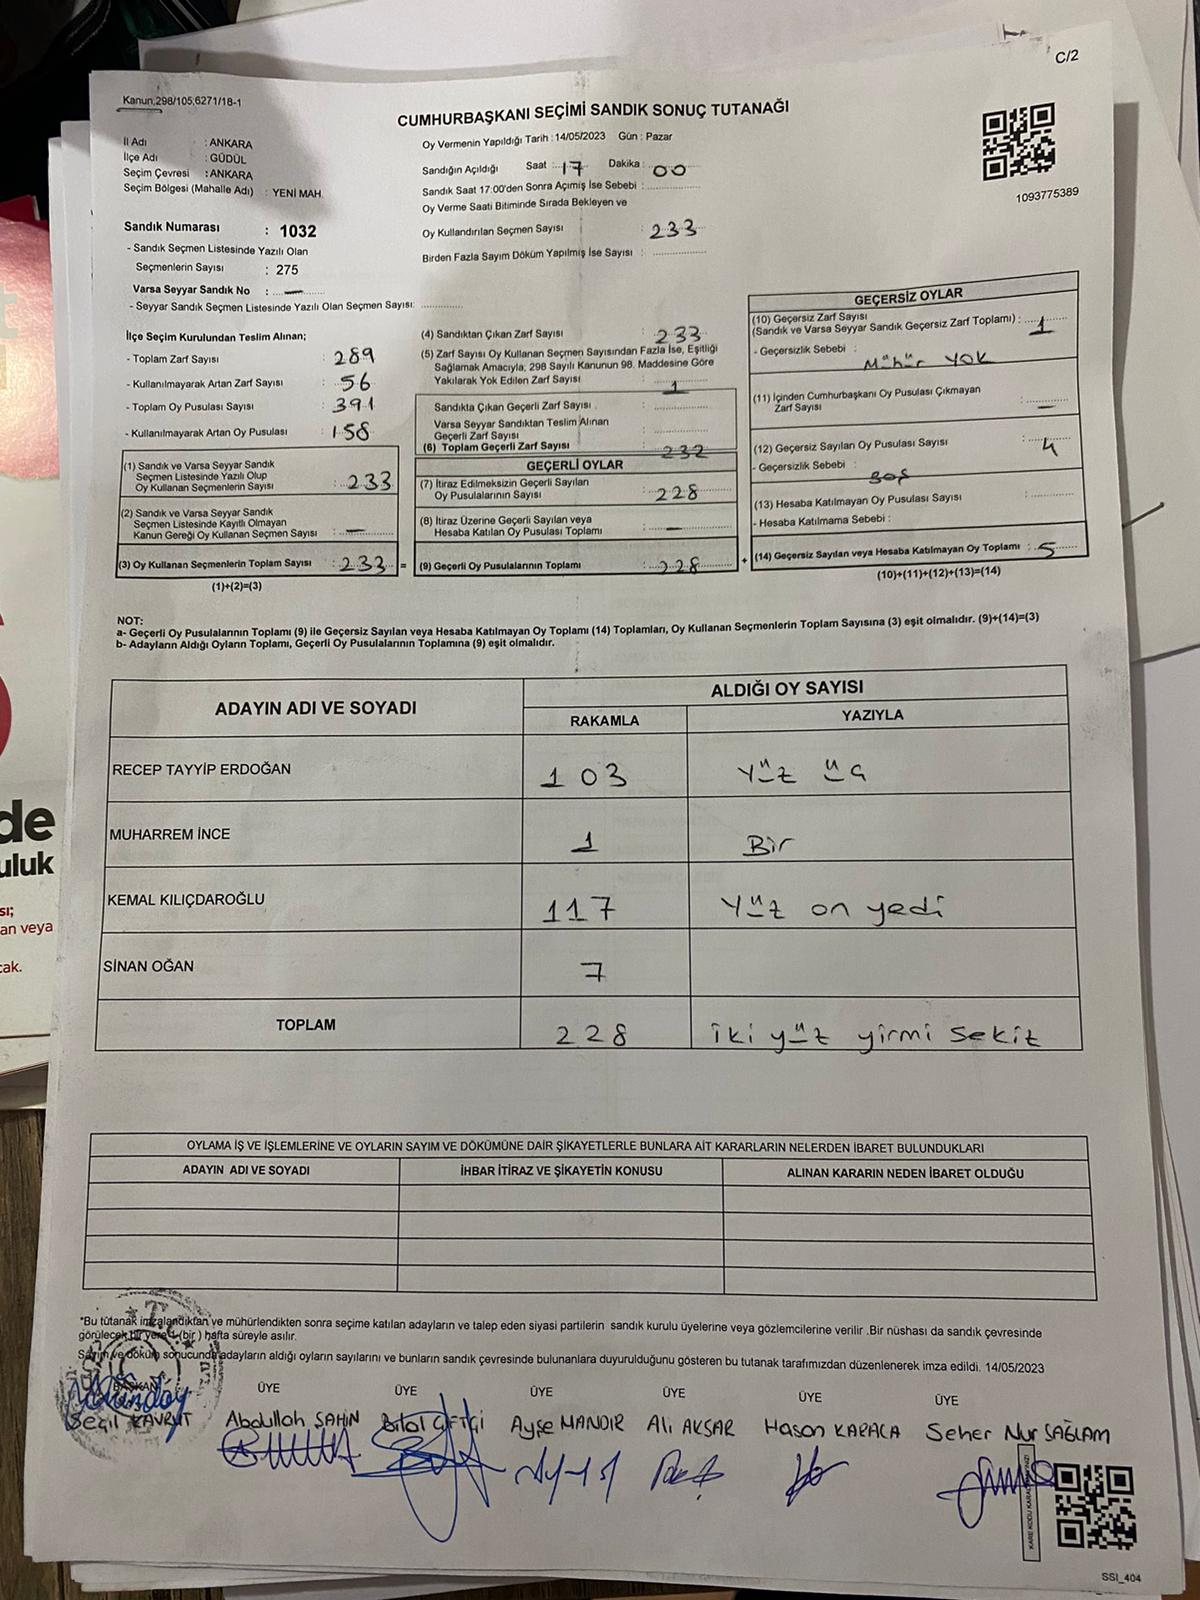 C/2
Kanun,298/105,6271/18-1
CUMHURBAŞKANI SEÇİMİ SANDIK SONUÇ TUTANAĞI
İl Adı : ANKARA
İlçe Adı : GÜDÜL
Seçim Çevresi : ANKARA
Seçim Bölgesi (Mahalle Adı) : YENİ MAH.
Oy Vermenin Yapıldığı Tarih : 14/05/2023 Gün : Pazar
Sandığın Açıldığı Saat : 17 Dakika : 00
Sandık Saat 17:00'den Sonra Açımış İse Sebebi :
Oy Verme Saati Bitiminde Sırada Bekleyen ve
Oy Kullandırılan Seçmen Sayısı : 233
Birden Fazla Sayım Döküm Yapılmış İse Sayısı :
1093775389
Sandık Numarası : 1032
- Sandık Seçmen Listesinde Yazılı Olan
Seçmenlerin Sayısı : 275
Varsa Seyyar Sandık No : —
- Seyyar Sandık Seçmen Listesinde Yazılı Olan Seçmen Sayısı:
İlçe Seçim Kurulundan Teslim Alınan;
- Toplam Zarf Sayısı : 289
- Kullanılmayarak Artan Zarf Sayısı : 56
- Toplam Oy Pusulası Sayısı : 391
- Kullanılmayarak Artan Oy Pusulası : 158
(1) Sandık ve Varsa Seyyar Sandık
Seçmen Listesinde Yazılı Olup
Oy Kullanan Seçmenlerin Sayısı : 233
(2) Sandık ve Varsa Seyyar Sandık
Seçmen Listesinde Kayıtlı Olmayan
Kanun Gereği Oy Kullanan Seçmen Sayısı : —
(3) Oy Kullanan Seçmenlerin Toplam Sayısı : 233 =
(1)+(2)=(3)
(4) Sandıktan Çıkan Zarf Sayısı : 233
(5) Zarf Sayısı Oy Kullanan Seçmen Sayısından Fazla İse, Eşitliği
Sağlamak Amacıyla; 298 Sayılı Kanunun 98. Maddesine Göre
Yakılarak Yok Edilen Zarf Sayısı : 1
Sandıkta Çıkan Geçerli Zarf Sayısı :
Varsa Seyyar Sandıktan Teslim Alınan
Geçerli Zarf Sayısı :
(6) Toplam Geçerli Zarf Sayısı : 232
GEÇERLİ OYLAR
(7) İtiraz Edilmeksizin Geçerli Sayılan
Oy Pusulalarının Sayısı : 228
(8) İtiraz Üzerine Geçerli Sayılan veya
Hesaba Katılan Oy Pusulası Toplamı : —
(9) Geçerli Oy Pusulalarının Toplamı : 228 +
GEÇERSİZ OYLAR
(10) Geçersiz Zarf Sayısı
(Sandık ve Varsa Seyyar Sandık Geçersiz Zarf Toplamı) : 1
- Geçersizlik Sebebi :
Mühür yok
(11) İçinden Cumhurbaşkanı Oy Pusulası Çıkmayan
Zarf Sayısı : —
(12) Geçersiz Sayılan Oy Pusulası Sayısı : 4
- Geçersizlik Sebebi :
Boş
(13) Hesaba Katılmayan Oy Pusulası Sayısı :
- Hesaba Katılmama Sebebi :
(14) Geçersiz Sayılan veya Hesaba Katılmayan Oy Toplamı : 5
(10)+(11)+(12)+(13)=(14)
NOT:
a- Geçerli Oy Pusulalarının Toplamı (9) ile Geçersiz Sayılan veya Hesaba Katılmayan Oy Toplamı (14) Toplamları, Oy Kullanan Seçmenlerin Toplam Sayısına (3) eşit olmalıdır. (9)+(14)=(3)
b- Adayların Aldığı Oyların Toplamı, Geçerli Oy Pusulalarının Toplamına (9) eşit olmalıdır.
ADAYIN ADI VE SOYADI ALDIĞI OY SAYISI
RAKAMLA YAZIYLA
RECEP TAYYİP ERDOĞAN 103 Yüz üç
MUHARREM İNCE 1 Bir
KEMAL KILIÇDAROĞLU 117 Yüz on yedi
SİNAN OĞAN 7
TOPLAM 228 iki yüz yirmi sekiz
OYLAMA İŞ VE İŞLEMLERİNE VE OYLARIN SAYIM VE DÖKÜMÜNE DAİR ŞİKAYETLERLE BUNLARA AİT KARARLARIN NELERDEN İBARET BULUNDUKLARI
ADAYIN ADI VE SOYADI İHBAR İTİRAZ VE ŞİKAYETİN KONUSU ALINAN KARARIN NEDEN İBARET OLDUĞU
*Bu tutanak imzalandıktan ve mühürlendikten sonra seçime katılan adayların ve talep eden siyasi partilerin sandık kurulu üyelerine veya gözlemcilerine verilir .Bir nüshası da sandık çevresinde
görülecek bir yere 1 (bir ) hafta süreyle asılır.
Sayım ve döküm sonucunda adayların aldığı oyların sayılarını ve bunların sandık çevresinde bulunanlara duyurulduğunu gösteren bu tutanak tarafımızdan düzenlenerek imza edildi. 14/05/2023
BAŞKAN ÜYE ÜYE ÜYE ÜYE ÜYE ÜYE
Seçil KAVRUT Abdullah ŞAHİN Bilal ÇİFTÇİ Ayşe MANDIR Ali AKSAR Hasan KARACA Seher Nur SAĞLAM
SSI_404
de
uluk
sı;
an veya
cak.